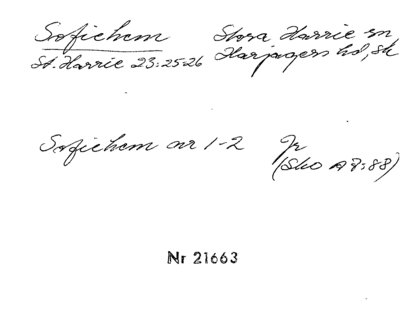 Sofiehem Stora Harrie sn
St. Harrie 23:25-26 Harjagers hd, Sk
Sofiehem nr 1-2 Jr
(SkO A7:88)
Nr 21663